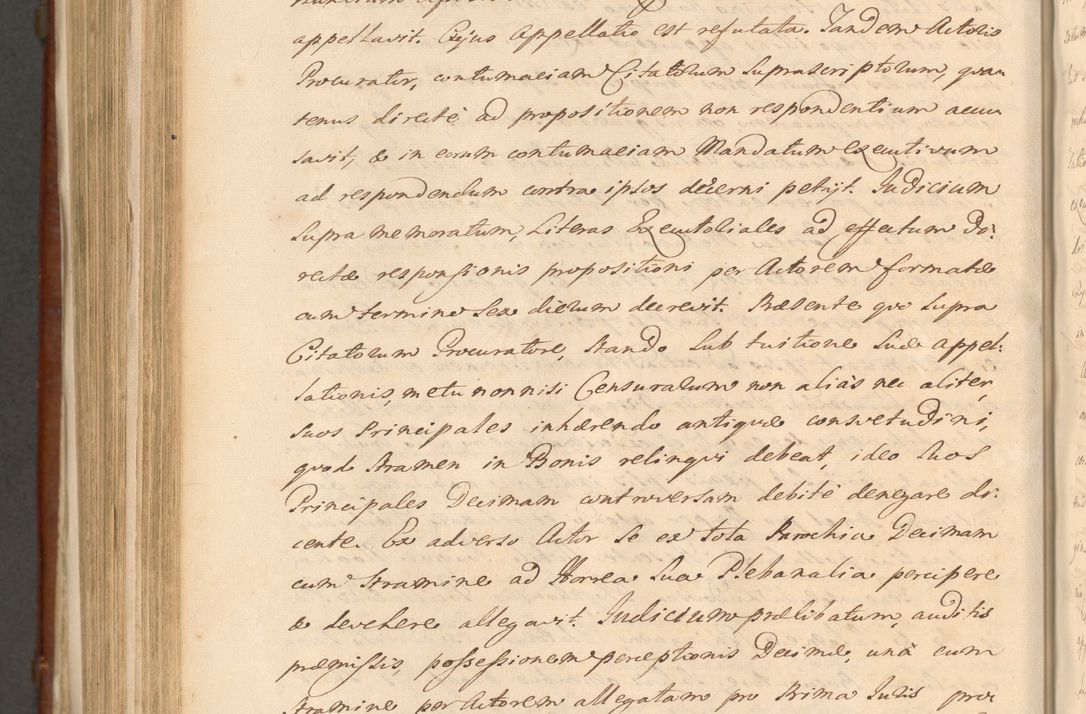 appellavit. Cujus Appellatio est refutata. Tandem Actoris
Procurator, contumaciam Citatorum Suprascriptorum, quan
tenus directè ad propositionem non respondentium accu
savit, & in eorum contumaciam Mandatum Executivum
ad respondendum contra ipsos decerni petiit. Judicium
Supra memoratum, Literas Executoriales ad effectum Di:
rectæ responsionis propositioni per Actorem formatæ
cum termino Sex dierum decrevit. Præsente quo Supra
Citatorum Procuratore, Stando Sub tuitione Suæ appel:
lationis, metu nonnisi Censurarum non aliàs nec aliter,
Suos Principales inhærendo antiquæ consvetudini,
quod Stramen in Bonis relinqui debeat, ideo Suos
Principales Decimam controversam debitè denegare di:
cente. Ex adverso Actor Se ex tota Parochia Decimam
cum Stramine ad Horrea Sua Plebanalia percipere
& devehere allegavit. Judicium prælibatum, auditis
præmissis, possessionem perceptionis Decimæ, unà cum
Stramine per Actorem allegatam pro Prima Juris pro: